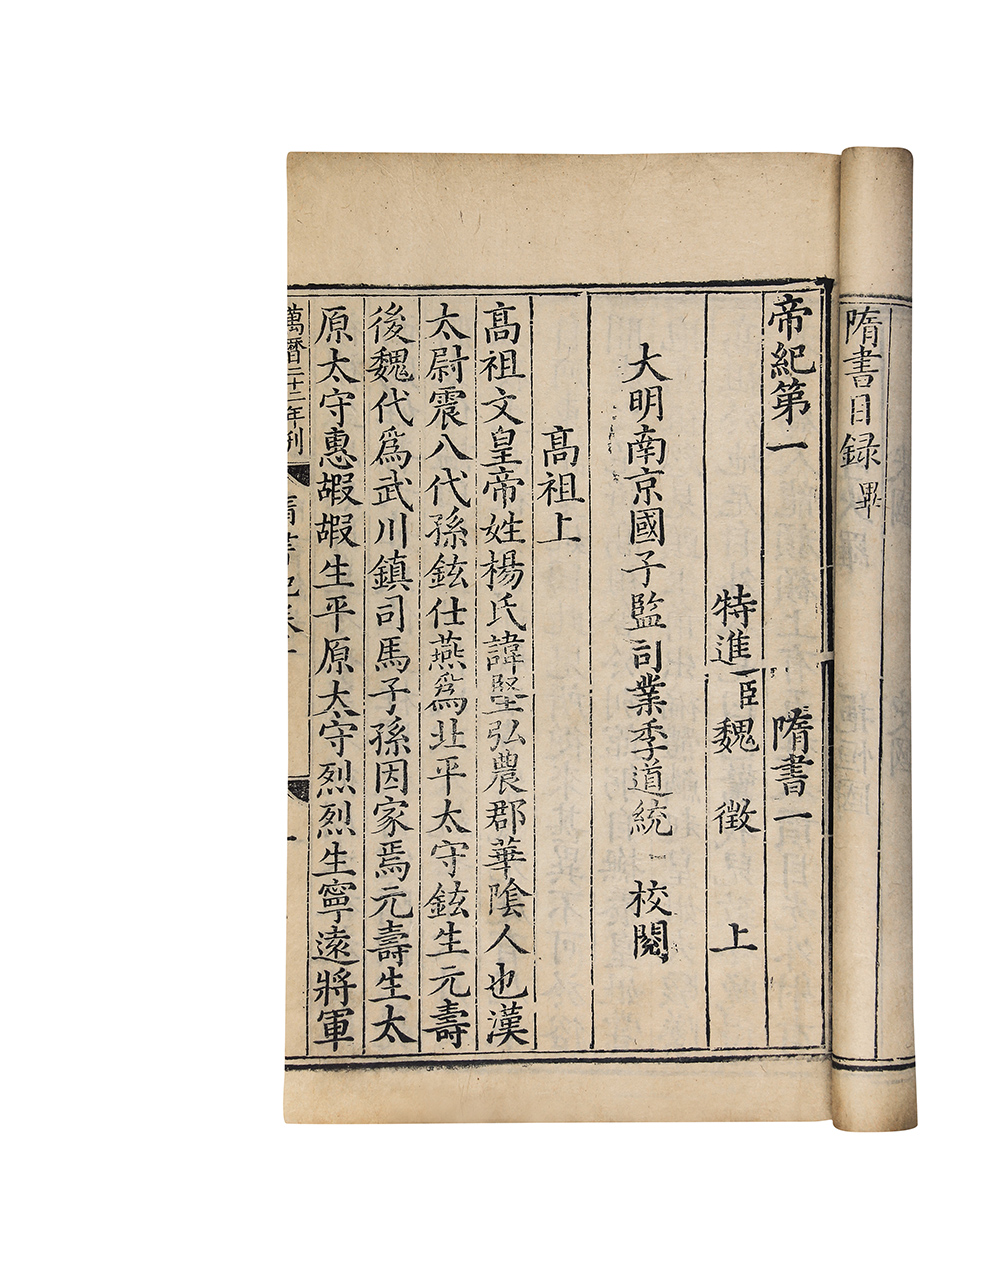 隋書目録畢
帝紀第一　隋書一
特進臣魏徵上
大明南京國子監司業季道統校閱
高祖上
高祖文皇帝姓楊氏諱堅弘農郡華陰人也漢
太尉震八代孫鉉仕燕爲北平太守鉉生元壽
後魏代爲武川鎮司馬子孫因家焉元壽生太
原太守惠嘏嘏生平原太守烈烈生寧遠將軍
萬曆二十二年刊
隋書紀卷一
一